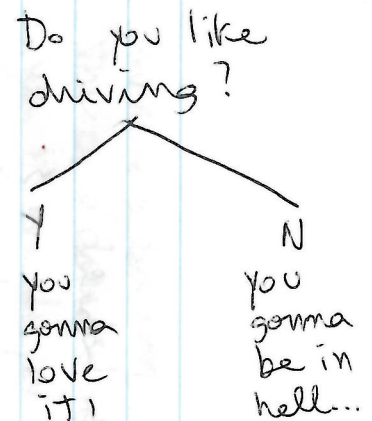 Do you like
driving?
Y
you
gonna
love
it!
N
you
gonna
be in
hell...